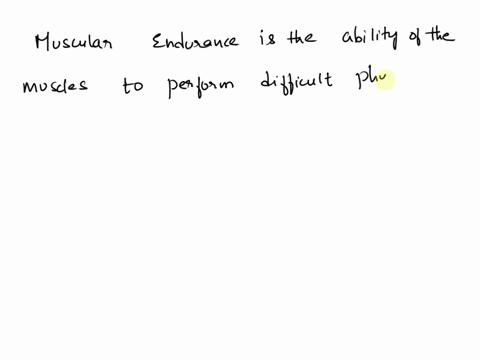 Muscular Endurance is the ability of the
muscles to perform difficult phy